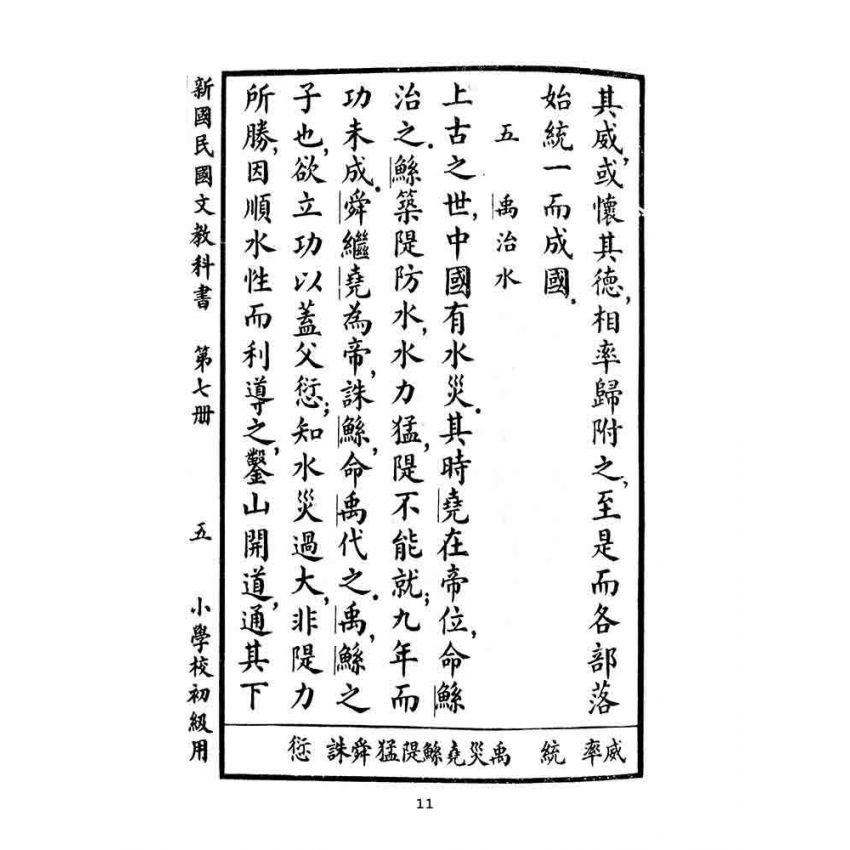 其威,或懷其德,相率歸附之,至是而各部落
始統一而成國。
五 禹治水
上古之世,中國有水災。其時堯在帝位,命鯀
治之。鯀築隄防水,水力猛,隄不能就;九年而
功未成。舜繼堯為帝,誅鯀,命禹代之。禹,鯀之
子也,欲立功以蓋父愆;知水災過大,非隄力
所勝,因順水性而利導之,鑿山開道,通其下
威率 統 禹災堯鯀隄猛舜誅 愆
新國民國文教科書 第七册 五 小學校初級用
11